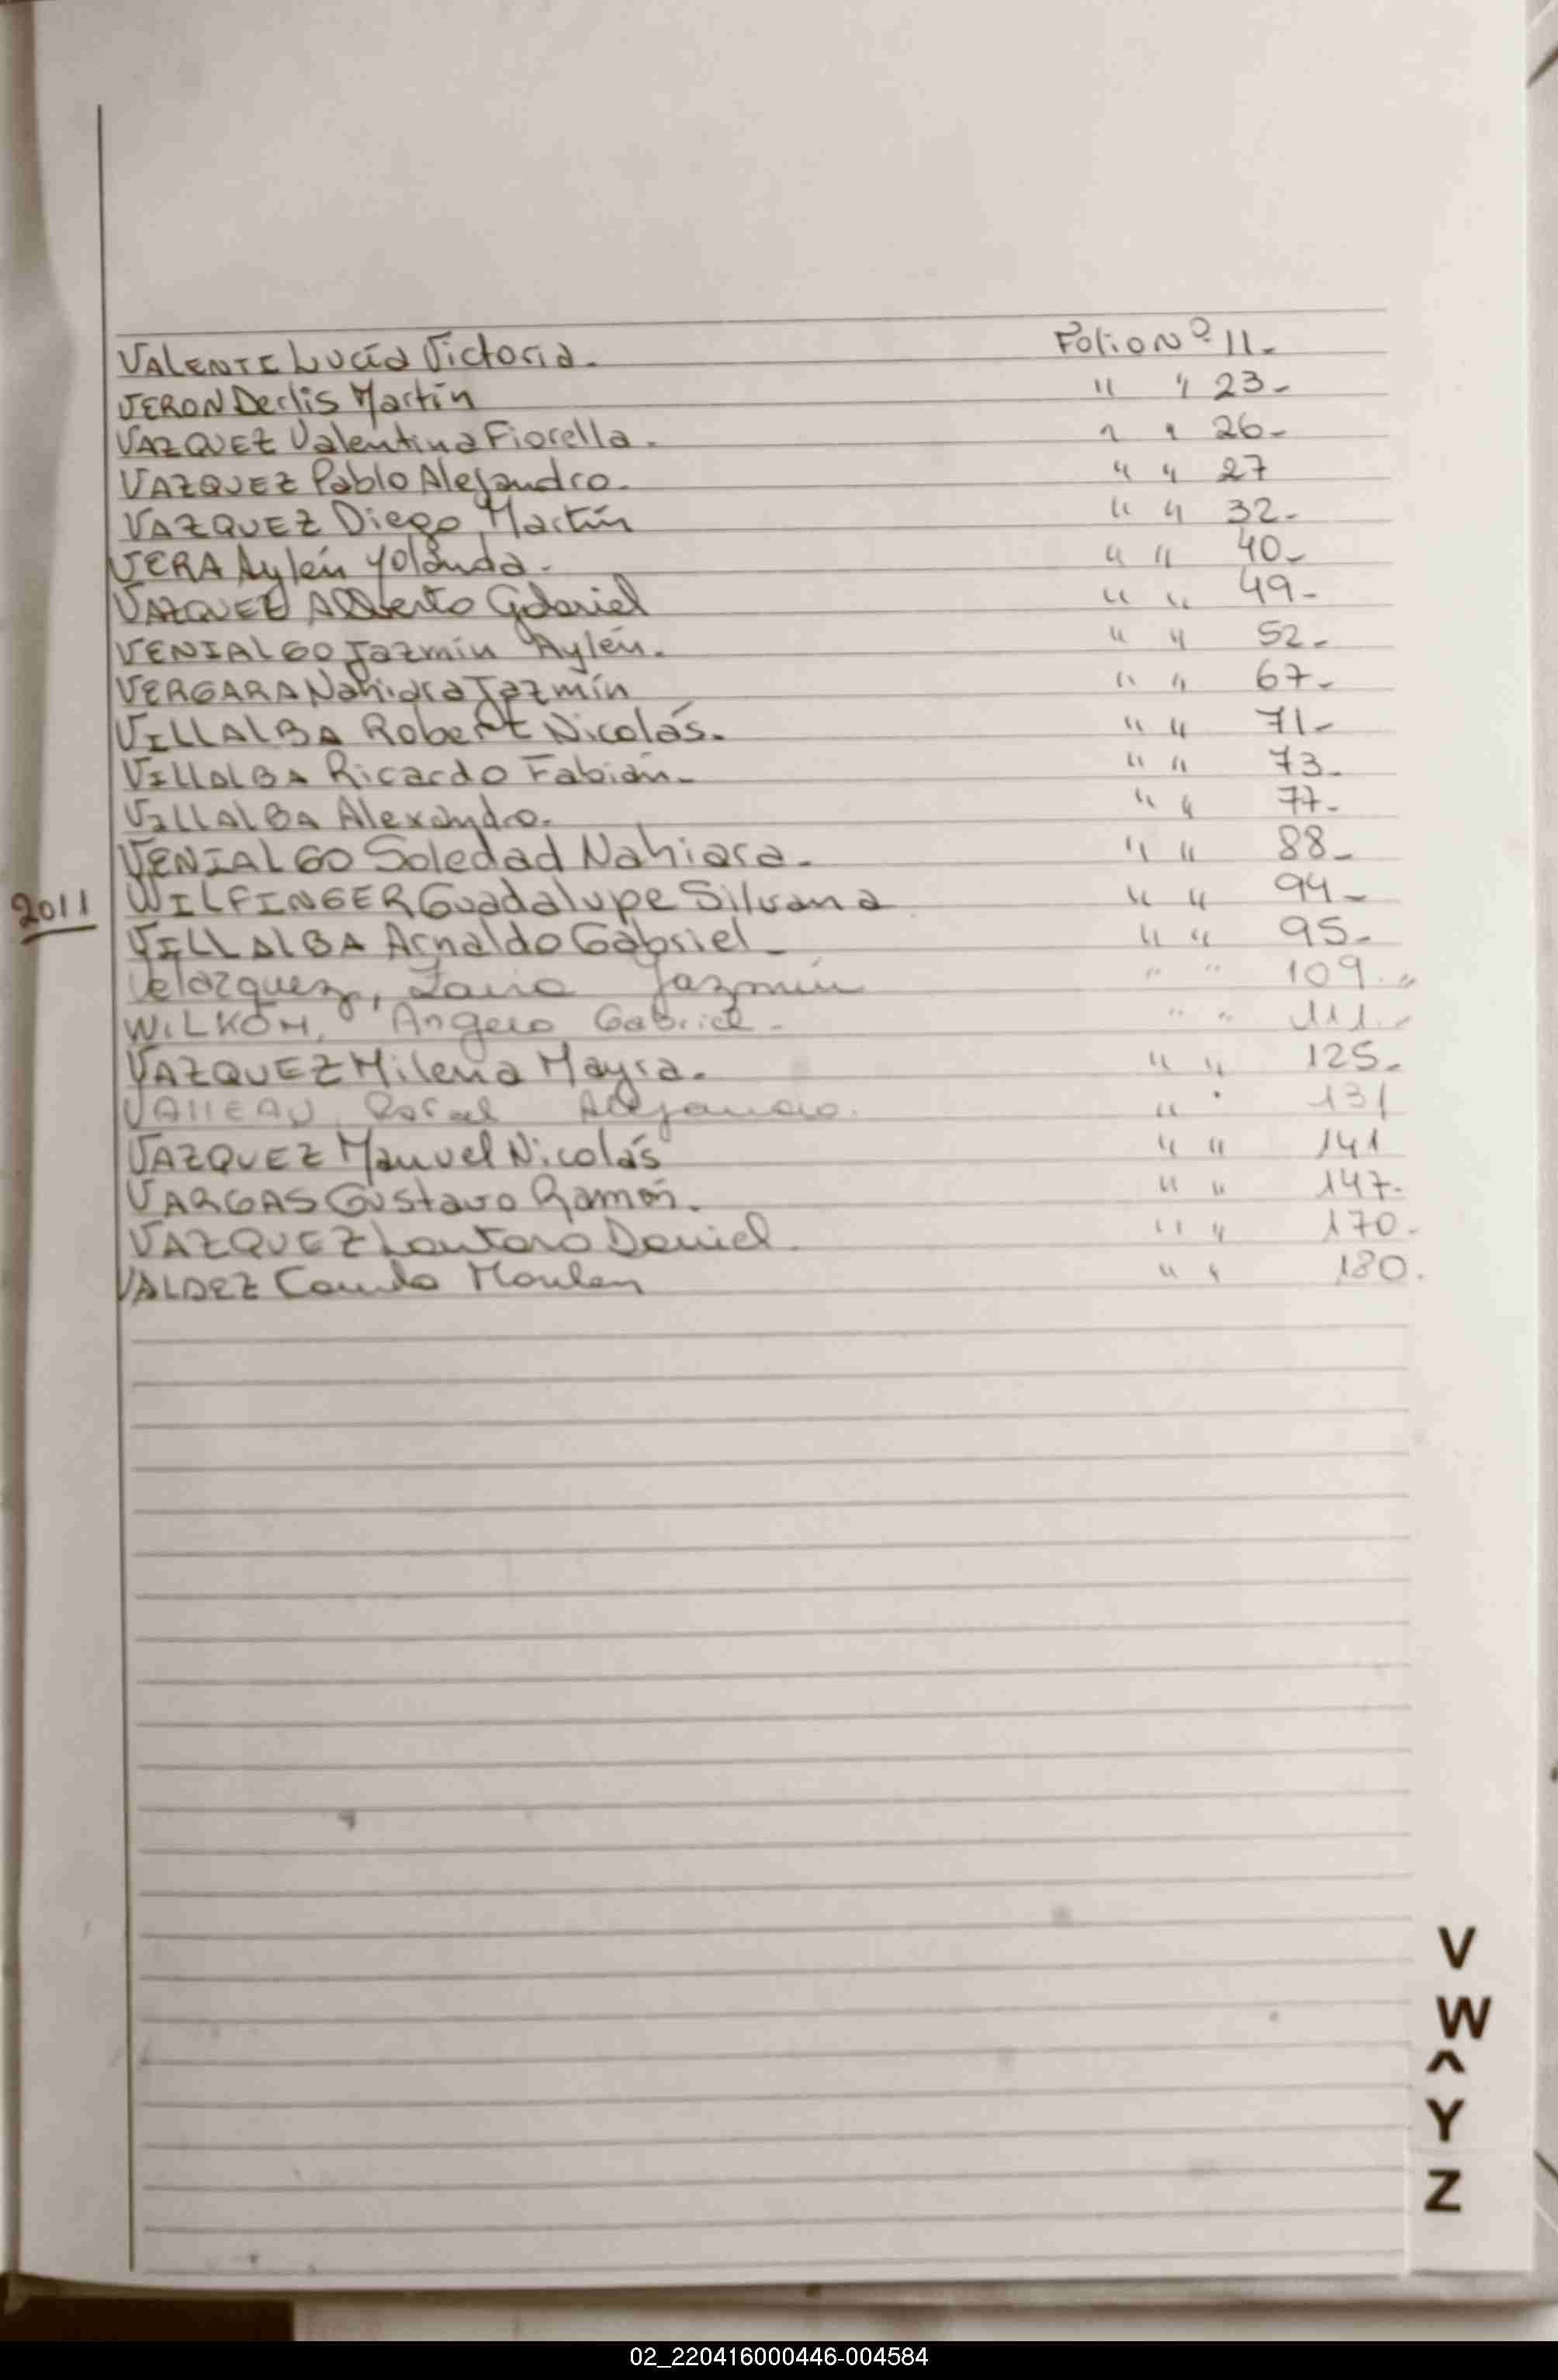 VALENTE Lucía Victoria. Folio Nº 11.
VERON Derlis Martín " " 23-
VAZQUEZ Valentina Fiorella. " " 26-
VAZQUEZ Pablo Alejandro. " " 27
VAZQUEZ Diego Martín " " 32-
VERA Aylén Yolanda. " " 40-
VAZQUEZ Alberto Gabriel " " 49-
VENIALGO Jazmín Aylén. " " 52-
VERGARA Nahiara Jazmín " " 67-
VILLALBA Robert Nicolás. " " 71-
VILLALBA Ricardo Fabián- " " 73-
VILLALBA Alexandro. " " 77-
VENIALGO Soledad Nahiara- " " 88-
2011 WILFINGER Guadalupe Silvana " " 94-
VILLALBA Arnaldo Gabriel- " " 95-
Velazquez, Jazmín " " 109."
WILKOM, Angelo Gabriel- " " 111.-
VAZQUEZ Milena Mayra. " " 125-
Rafael Alejandro. " " 131
VAZQUEZ Manuel Nicolás " " 141
VARGAS Gustavo Ramón. " " 147-
VAZQUEZ Lautaro Daniel. " " 170-
VALDEZ Camila " " 180.
V
W
Y
Z
02_220416000446-004584